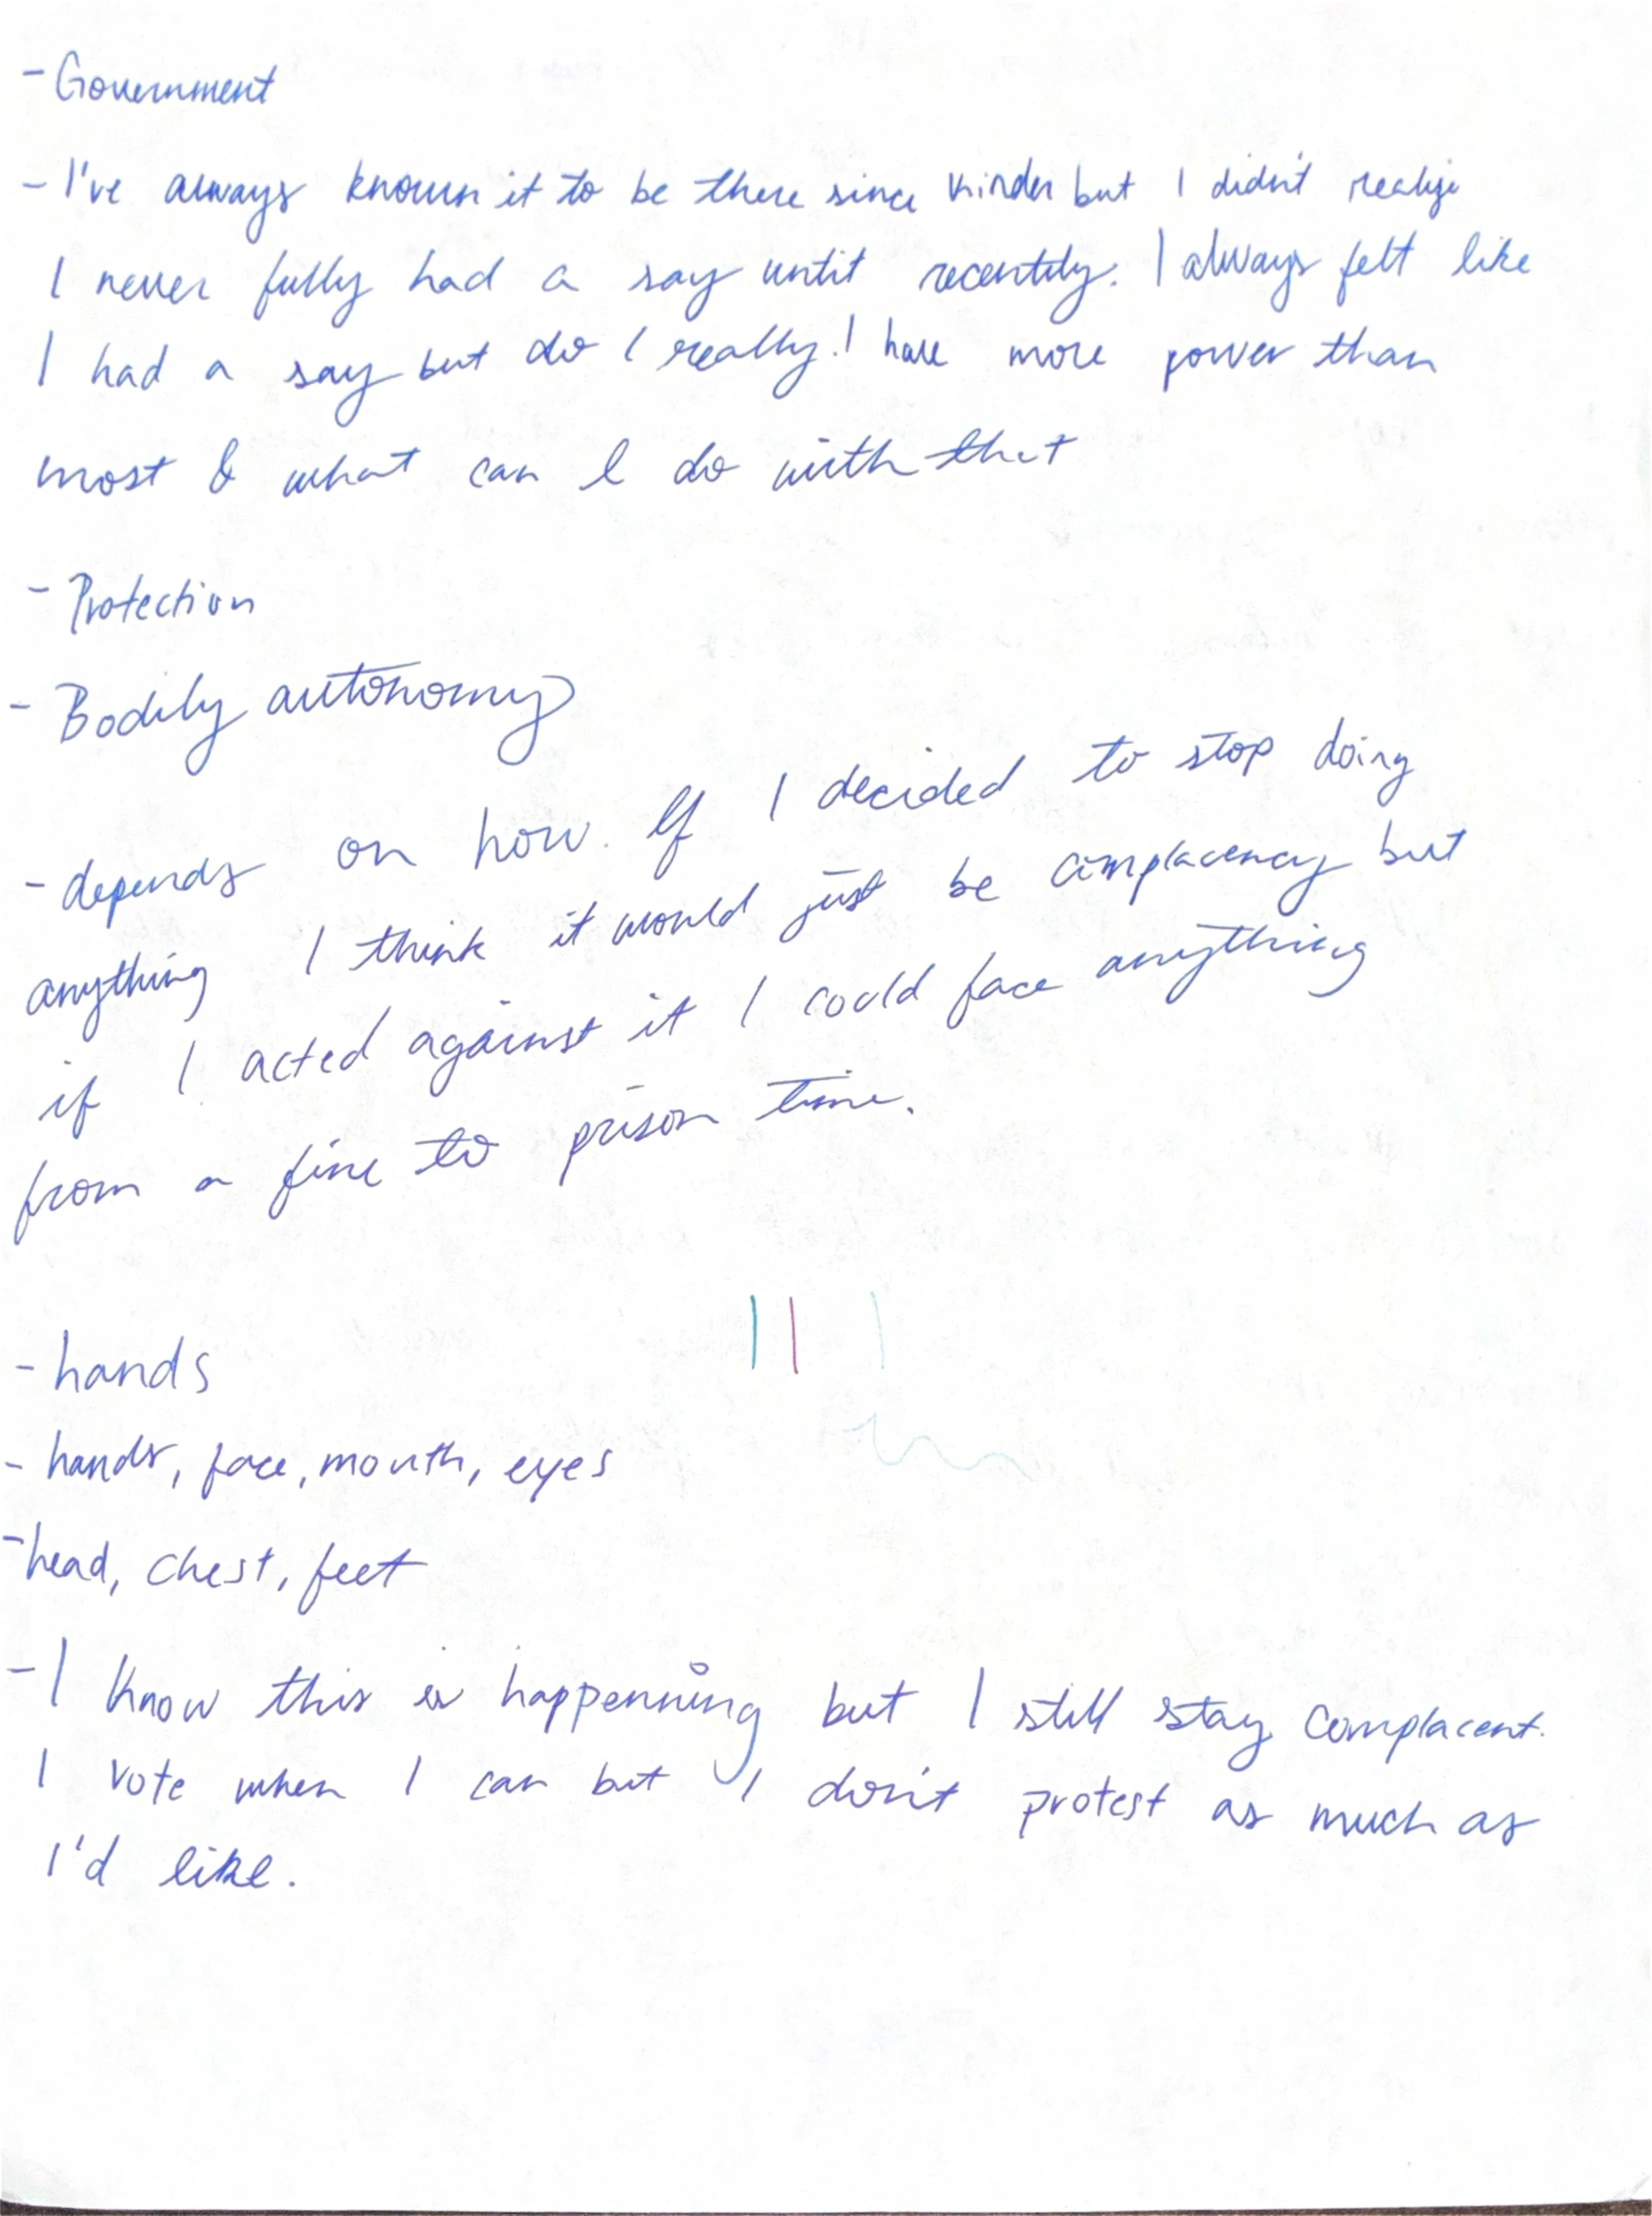 - Government
- I've always known it to be there since kinder but I didn't realize
I never fully had a say until recently. I always felt like
I had a say but do I really. I have more power than
most & what can I do with that
- Protection
- Bodily autonomy
- depends on how. If I decided to stop doing
anything I think it would just be complacency but
if I acted against it I could face anything
from a fine to prison time.
- hands
- hands, face, mouth, eyes
- head, chest, feet
- I know this is happenning but I still stay complacent.
I vote when I can but I don't protest as much as
I'd like.